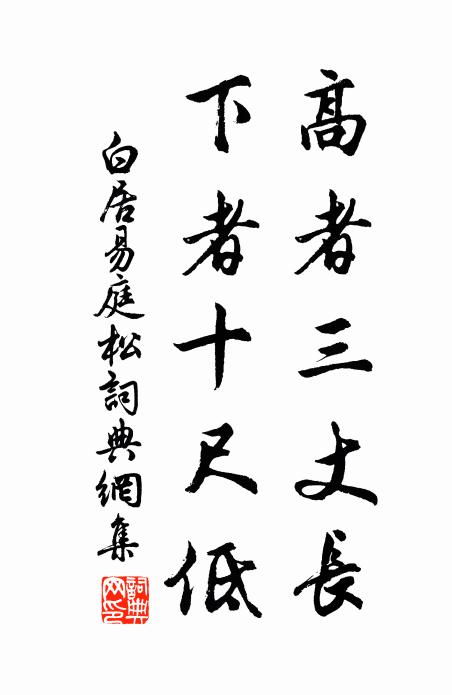 高者三丈長
下者十尺低
白居易庭松詞典網集
詞典网印